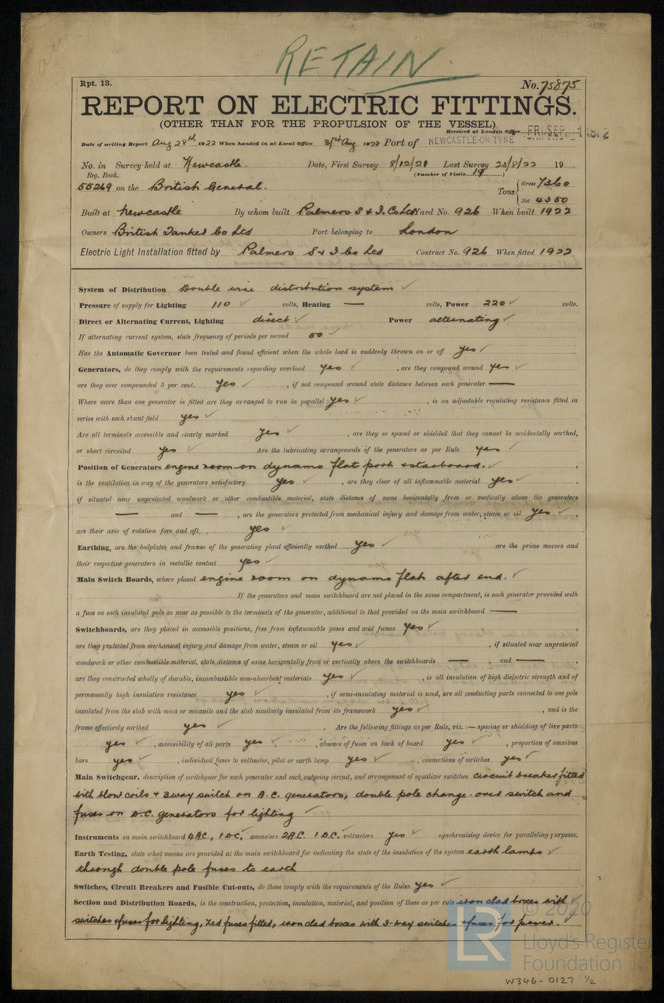 RETAIN
Rpt. 13.
No. 75875
REPORT ON ELECTRIC FITTINGS.
(OTHER THAN FOR THE PROPULSION OF THE VESSEL)
Received at London Office FRI. SEP. 1
Date of writing Report Aug 28th 1922 When handed in at Local Office 31st Aug 1922 Port of NEWCASTLE-ON-TYNE
No. in Survey held at Newcastle. Date, First Survey 8/12/21 Last Survey 23/8/22 19
Reg. Book. (Number of Visits 19)
55269 on the British General. Tons { Gross 7360
Net 4350
Built at Newcastle By whom built Palmers S & I. Co Ltd Yard No. 926 When built 1922
Owners British Tanker Co Ltd Port belonging to London
Electric Light Installation fitted by Palmers S & I Co Ltd Contract No. 926 When fitted 1922
System of Distribution Double wire distribution system ✓
Pressure of supply for Lighting 110 ✓ volts, Heating — volts, Power 220 ✓ volts.
Direct or Alternating Current, Lighting direct ✓ Power alternating ✓
If alternating current system, state frequency of periods per second 50 ✓
Has the Automatic Governor been tested and found efficient when the whole load is suddenly thrown on or off yes ✓
Generators, do they comply with the requirements regarding overload yes ✓ , are they compound wound yes ✓
are they over compounded 5 per cent. yes ✓ , if not compound wound state distance between each generator —
Where more than one generator is fitted are they arranged to run in parallel yes ✓ , is an adjustable regulating resistance fitted in
series with each shunt field yes ✓
Are all terminals accessible and clearly marked yes ✓ , are they so spaced or shielded that they cannot be accidentally earthed,
or short circuited yes ✓ Are the lubricating arrangements of the generators as per Rule yes ✓
Position of Generators engine room on dynamo flat port & starboard. ✓
is the ventilation in way of the generators satisfactory yes ✓ , are they clear of all inflammable material yes ✓
if situated near unprotected woodwork or other combustible material, state distance of same horizontally from or vertically above the generators
— and — , are the generators protected from mechanical injury and damage from water, steam or oil yes ✓
are their axis of rotation fore and aft yes ✓
Earthing, are the bedplates and frames of the generating plant efficiently earthed yes ✓ are the prime movers and
their respective generators in metallic contact yes ✓
Main Switch Boards, where placed engine room on dynamo flat after end. ✓
If the generators and main switchboard are not placed in the same compartment, is each generator provided with
a fuse on each insulated pole as near as possible to the terminals of the generator, additional to that provided on the main switchboard —
Switchboards, are they placed in accessible positions, free from inflammable gases and acid fumes yes ✓
are they protected from mechanical injury and damage from water, steam or oil yes ✓ , if situated near unprotected
woodwork or other combustible material, state distance of same horizontally from or vertically above the switchboards — and —
are they constructed wholly of durable, incombustible non-absorbent materials yes ✓ , is all insulation of high dielectric strength and of
permanently high insulation resistance yes ✓ , if semi-insulating material is used, are all conducting parts connected to one pole
insulated from the slab with mica or micanite and the slab similarly insulated from its framework yes ✓ , and is the
frame effectively earthed yes ✓ Are the following fittings as per Rule, viz.:— spacing or shielding of live parts
yes ✓ , accessibility of all parts yes ✓ , absence of fuses on back of board yes ✓ , proportion of omnibus
bars yes ✓ , individual fuses to voltmeter, pilot or earth lamp yes ✓ , connections of switches yes ✓
Main Switchgear, description of switchgear for each generator and each outgoing circuit, and arrangement of equaliser switches circuit breaker fitted
with blow coils & 3 way switch on A.C. generators, double pole change-over switch and
fuses on D.C. generators for lighting ✓
Instruments on main switchboard 4 A.C. 1 D.C. ammeters 2 A.C. 1 D.C. voltmeters yes ✓ synchronising device for paralleling purposes.
Earth Testing, state what means are provided at the main switchboard for indicating the state of the insulation of the system earth lamps ✓
through double pole fuses to earth
Switches, Circuit Breakers and Fusible Cut-outs, do these comply with the requirements of the Rules yes ✓
Section and Distribution Boards, is the construction, protection, insulation, material, and position of these as per rule iron clad boxes with
switches & fuses for lighting, zed fuses fitted, iron clad boxes with 3-way switches & fuses for power.
LR © 2020
Lloyd's Register
Foundation
W346-0127 1/2